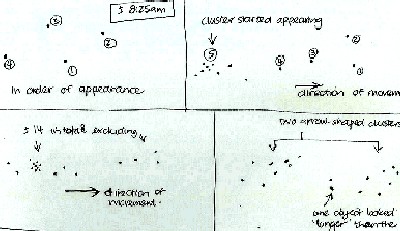 ± 8:25am
③
②
④
①
In order of appearance
cluster started appearing
⑤
④
③
②
①
direction of movem
± 14 in total excluding
direction of
movement.
Two arrow-shaped clusters
one object looked
"longer" than the